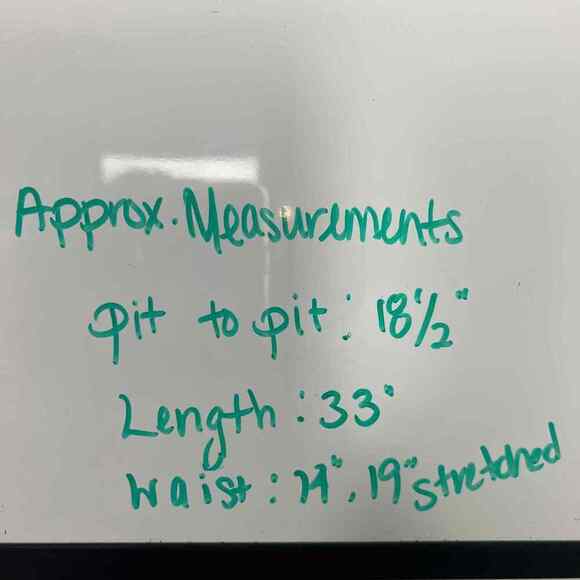 Approx. Measurements
pit to pit: 18 1/2"
Length: 33"
Waist: 14", 19" stretched